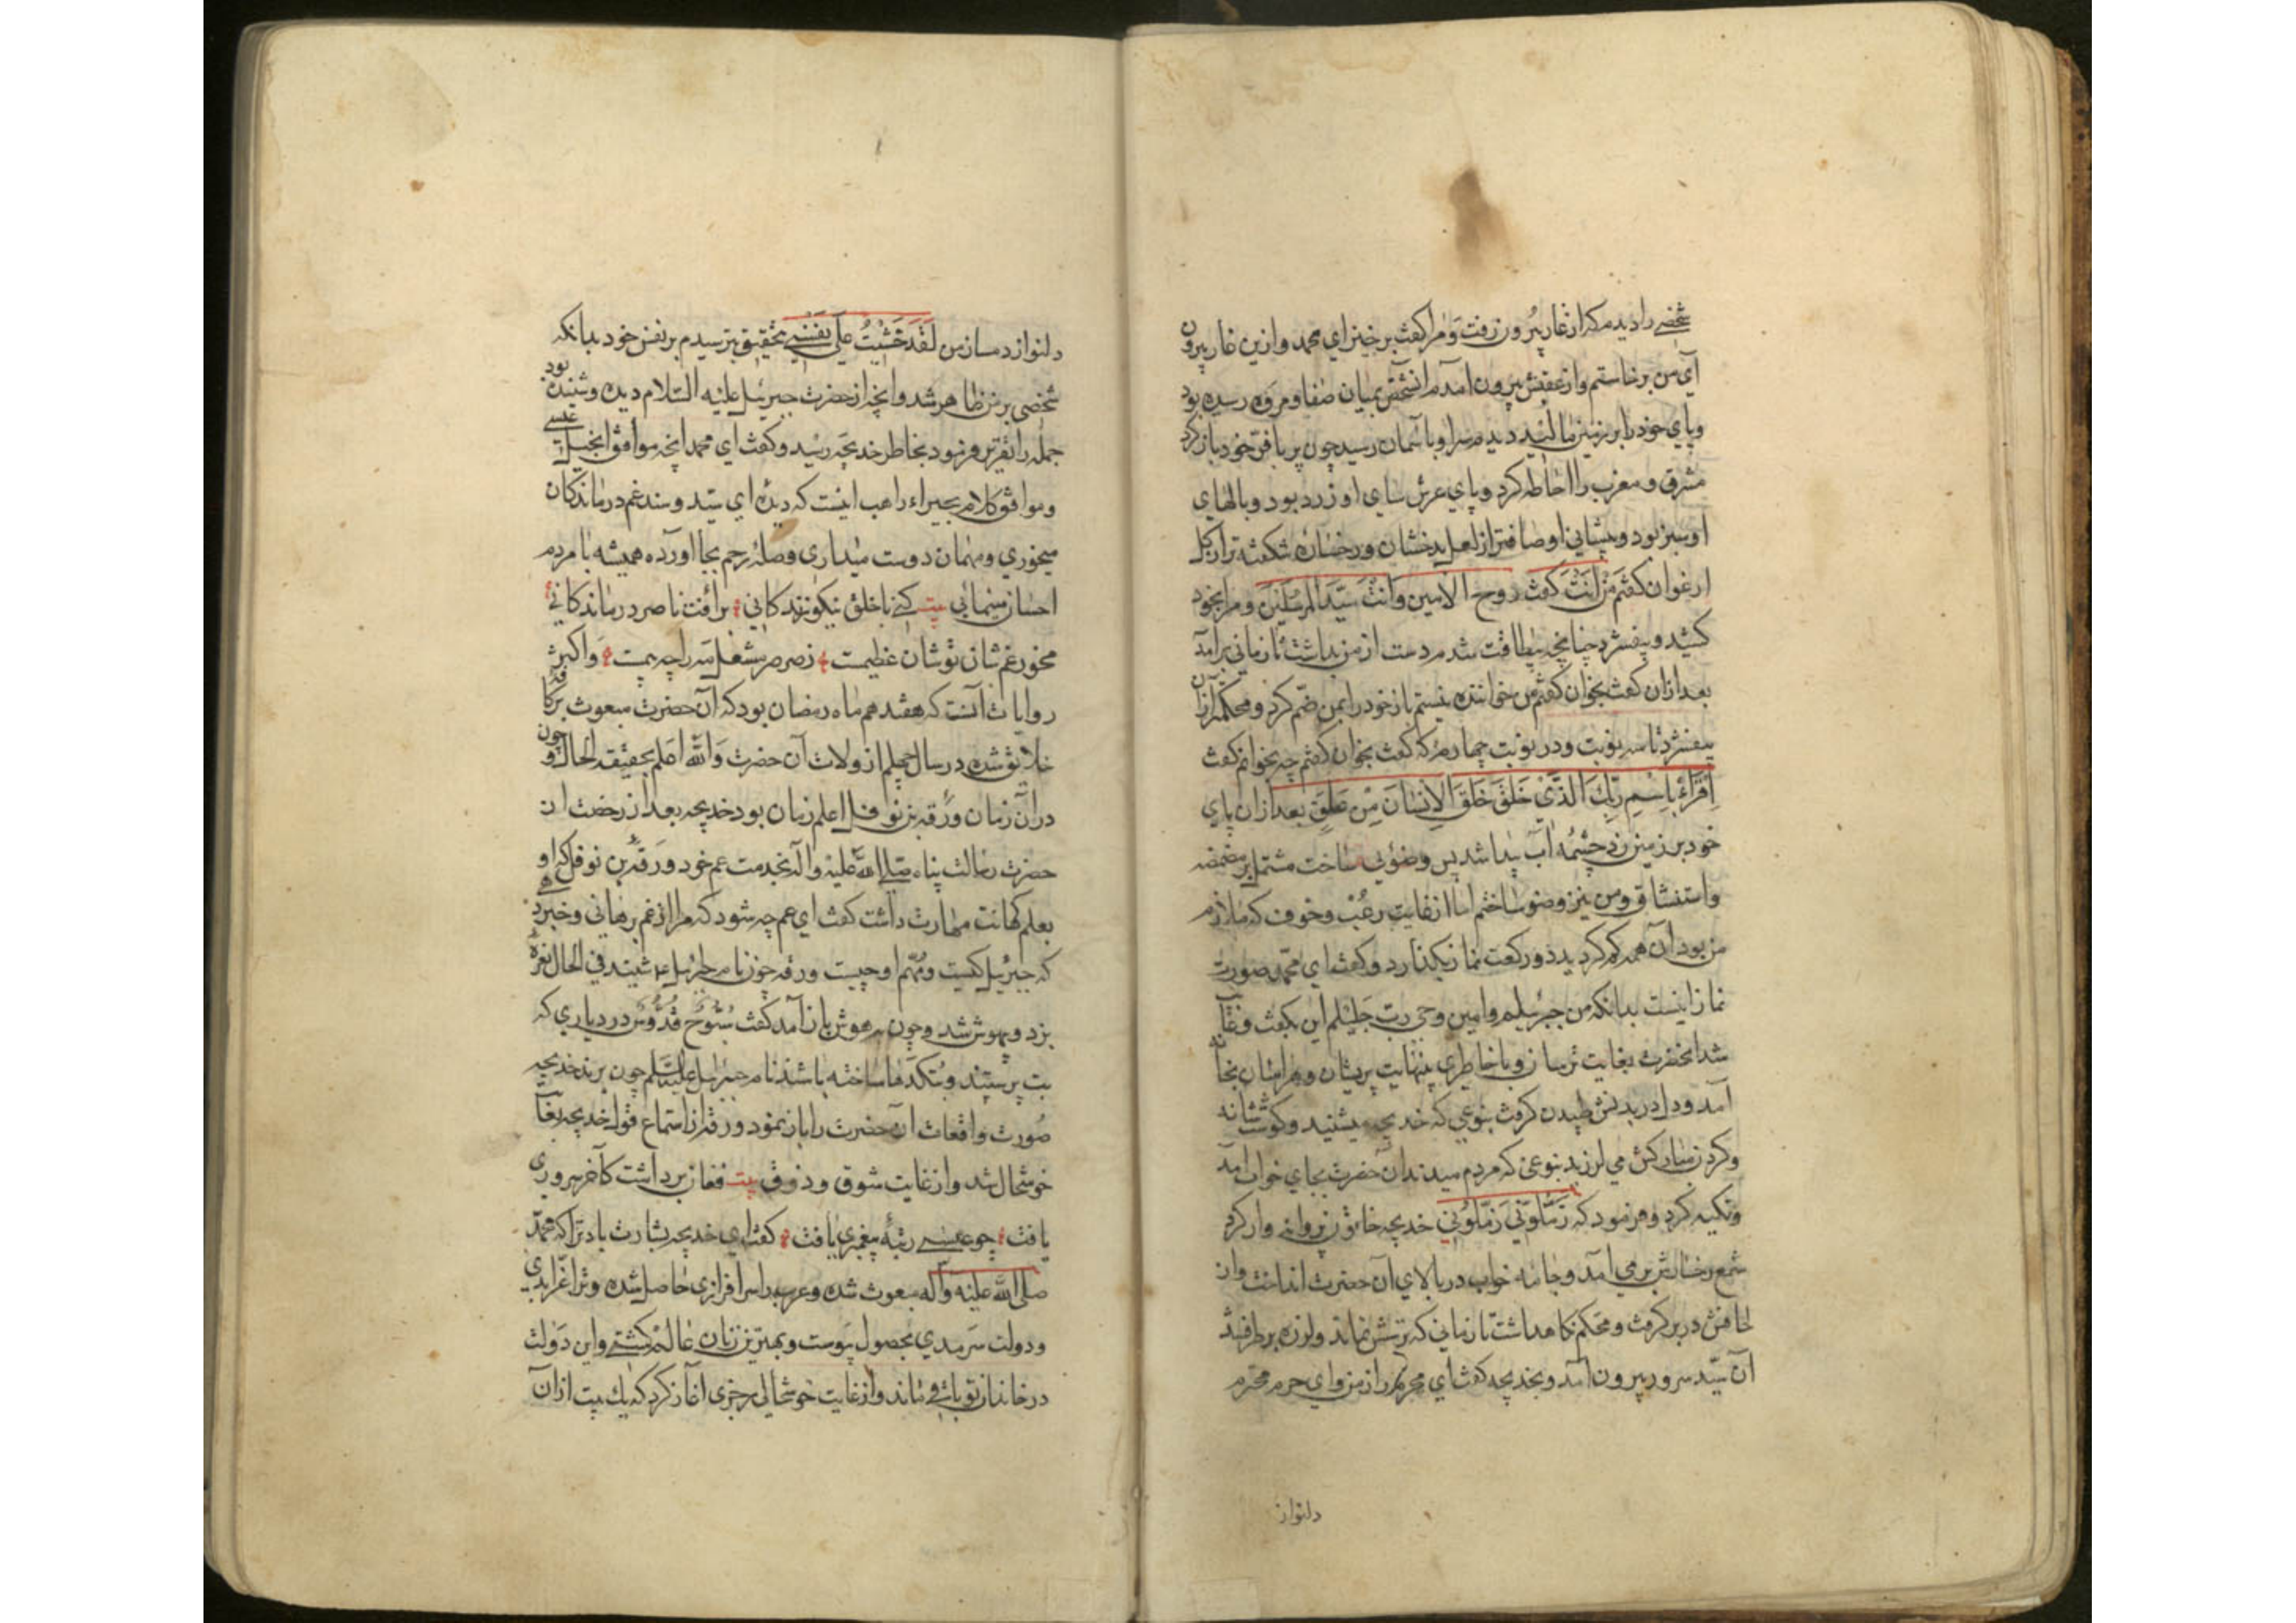 شخصی را دیدم که از غار بیرون رفت و مرا گفت برخیز ای محمد و ازین غار بیرون
آی من برخاستم و از عقبش بیرون آمدم آنشخص بمیان صفا و مروه رسیده بود
و پای خود را بر زمین مالید دیدم سر او بآسمان رسید چون پر بافر خود باز کرد
مشرق و مغرب را احاطه کرد و پای عرش سای او زرد بود و بالهای
او سبز بود و پیشانی او صافتر از لعل بدخشان و رخساره شکفته تر از گل
ارغوان گفتم مَنْ اَنْتَ گفت روح الامین وَاَنْتَ سَیّدَ المرسَلینَ و مرا بخود
کشید و بیفشرد چنانچه بیطاقت شدم دست از من بداشت تا زمانی برآمد
بعد ازان گفت بخوان گفتم من خواننده نیستم باز خود را بمن ضمّ کرد و محکمتر از آن
بیفشرد تا سه نوبت و در نوبت چهارم که گفت بخوان گفتم چه بخوانم گفت
اِقْرَاْءْ بِاسْمِ رَبِّكَ الَّذَّیْ خَلَقَ خَلَقَ الْاِنْسَانَ مِنْ عَلَقٍ بعد ازان پای
خود بر زمین زد چشمهٔ آب پیدا شد پس وضوئی ساخت مشتمل بر مضمضه
و استنشاق و من نیز وضو ساختم اما از غایت رعب و خوف که ملازم
من بود آن همه کم کردید دو رکعت نماز بگذارد و گفت ای محمّد صورت
نماز اینست بدانکه من جبرئیلم و امین وحی ربّ جلیلم این بگفت و غایب
شد آنحضرت بغایت ترسان و با خاطری بینهایت پریشان و هراسان بخانه
آمد و دل در بدنش طپیدن گرفت بنوعی که خدیجه میشنید و گوشت شانه
و گردن مبارکش می لرزید بنوعی که مردم میدیدند آن حضرت بجای خواب آمد
و تکیه کرد و فرمود که زَمّلُوِنّیَ زَمّلوُنی خدیجه خاتون پروانه وار گرد
شمع رخسارش بر می آمد و جامه خواب در بالای آن حضرت انداخت و آن
لحافش در بر گرفت و محکم نگاهداشت تا زمانی که ترسش نماند و لرزه برطرف شد
آن سیّد سرور بیرون آمد و بخدیجه گفت ای محرم راز من و ای حرم محترم
دلنواز
دلنواز دمساز من لَقَدَ خَشَیْتُ عَلی نَفْسی بتحقیق بترسیدم بر نفس خود بدانکه
شخصی بر من ظاهر شد و آنچه از حضرت جبرئیل علیه السّلام دیده و شنیده بود
جمله را تقریر فرمود بخاطر خدیجه رسید و گفت ای محمد آنچه موافق انجیل عیسی
و موافق کلام بحیراء راهب اینست که دیدهٔ ای سیّد و سند غم درماندگان
میخوری و مهمان دوست میداری و صلهٔ رحم بجا آورده همیشه با مردم
احسان مینمائی بیت کسے با خلق نیکو زندگانی برائت ناصر درماندگانی
مخور غم شان تو شان عظیمت ز صرصر مشعل مه را چه بیمت و اکثر
روایات آنست که هفدهم ماه رمضان بود که آن حضرت مبعوث بر کافه
خلایق شده در سال چهلم از ولادت آن حضرت وَالله اَعلم بحقیقه الحال و چون
در آن زمان ورقه بن نوفل اعلم زمان بود خدیجه بعد از رخصت از
حضرت رسالت پناه صلی الله علیه و آله بخدمت عم خود ورقه بن نوفل که او
بعلم کهانت مهارت داشت گفت ای عم چه شود که مرا از غم برهانی و خبر دهی
که جبرئیل کیست و مُهّم او چیست ورقه چون نام جبرئیل ع شنید فی الحال نعرهٔ
بزد و بیهوش شد و چون بهوش باز آمد گفت سُبّوُحٌ قُدُّوُسٌ در دیاری که
بت پرستند و بتکدها ساخته باشند نام جبرئیل علیه السّلم چون برند خدیجه
صورت واقعات آن حضرت را باز نمود ورقه از استماع قول خدیجه بغایت
خوشحال شد و از غایت شوق و ذوق بیت فغان برداشت کآخر سروری
یافت چو عیسی رتبهٔ پیغمبری یافت گفت ای خدیجه بشارت باد ترا که محمّد
صلی الله علیه وآله مبعوث شده و عرب را سرافرازی حاصل شده و ترا عزّ ابدی
و دولت سرمدی بحصول پیوست و بهترین زنان عالم گشتے و این دولت
در خاندان تو باقی ماند و از غایت خوشحالی رجزی آغاز کرد که یك بیت از آن